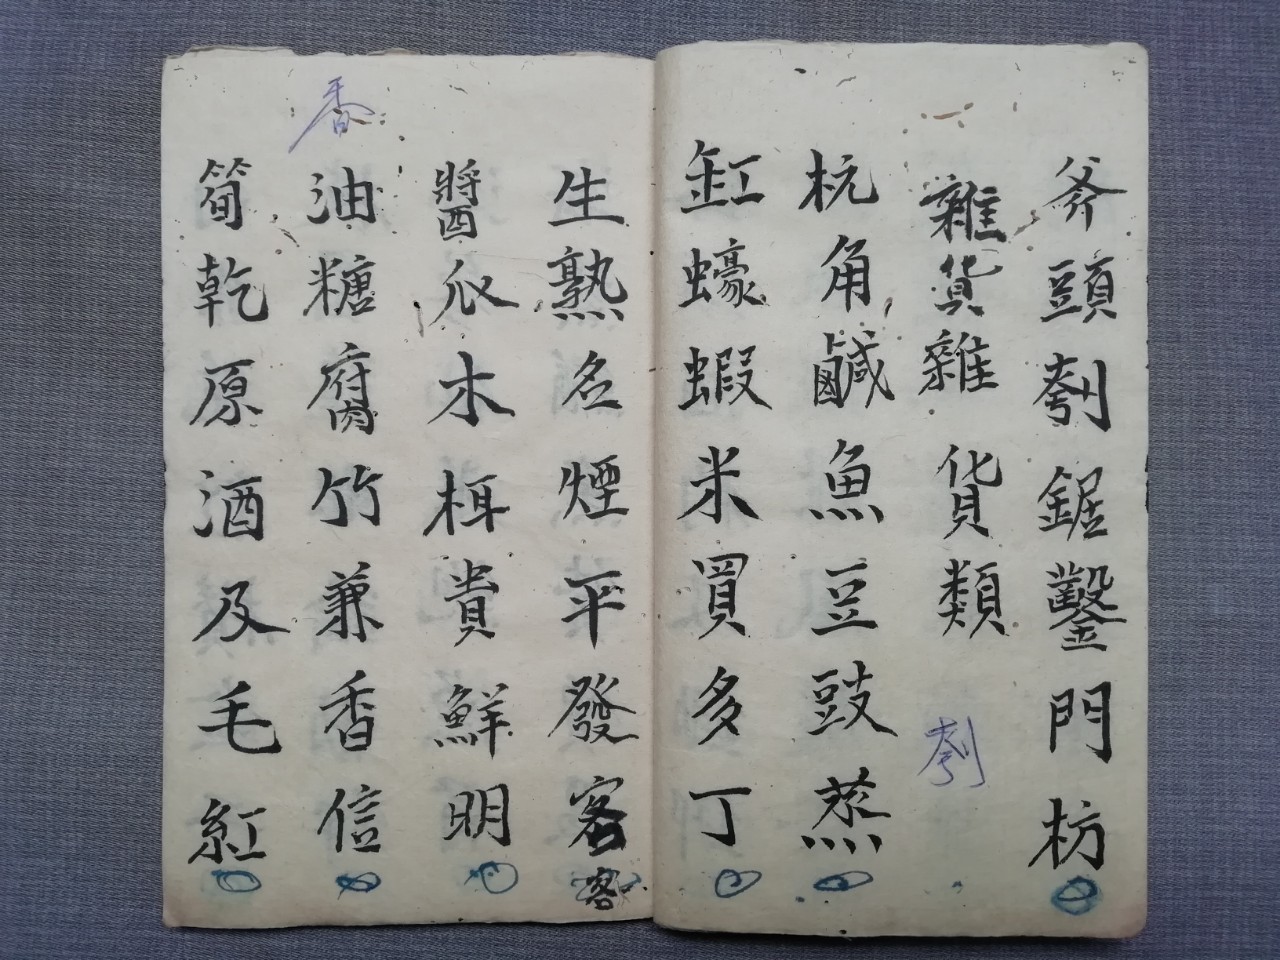 斧頭刳鋸鑿門枋
雜貨雜貨類
刳
杬角鹹魚豆豉蒸
缸蠔蝦米買多丁
生熟名煙平發客
客
醬瓜木栮貴鮮明
香
油糖腐竹兼香信
筍乾原酒及毛紅